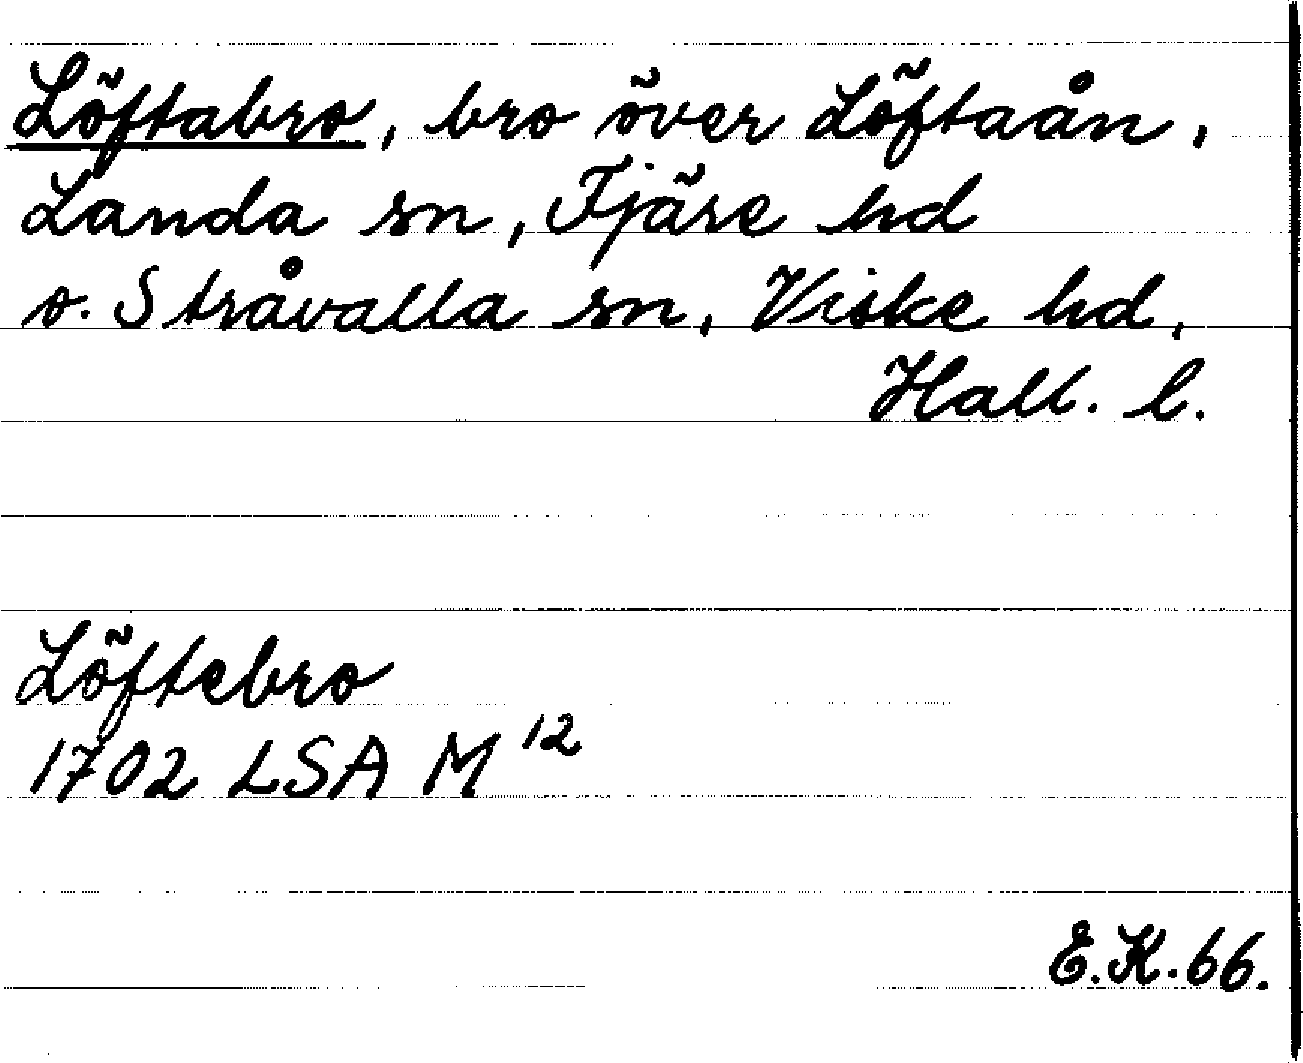 Löftabro, bro över Löftaån,
Landa sn, Fjäre hd
o. Stråvalla sn, Viske hd,
Hall. l.
Löftebro
1702 LSA M 12
E.K. 66.